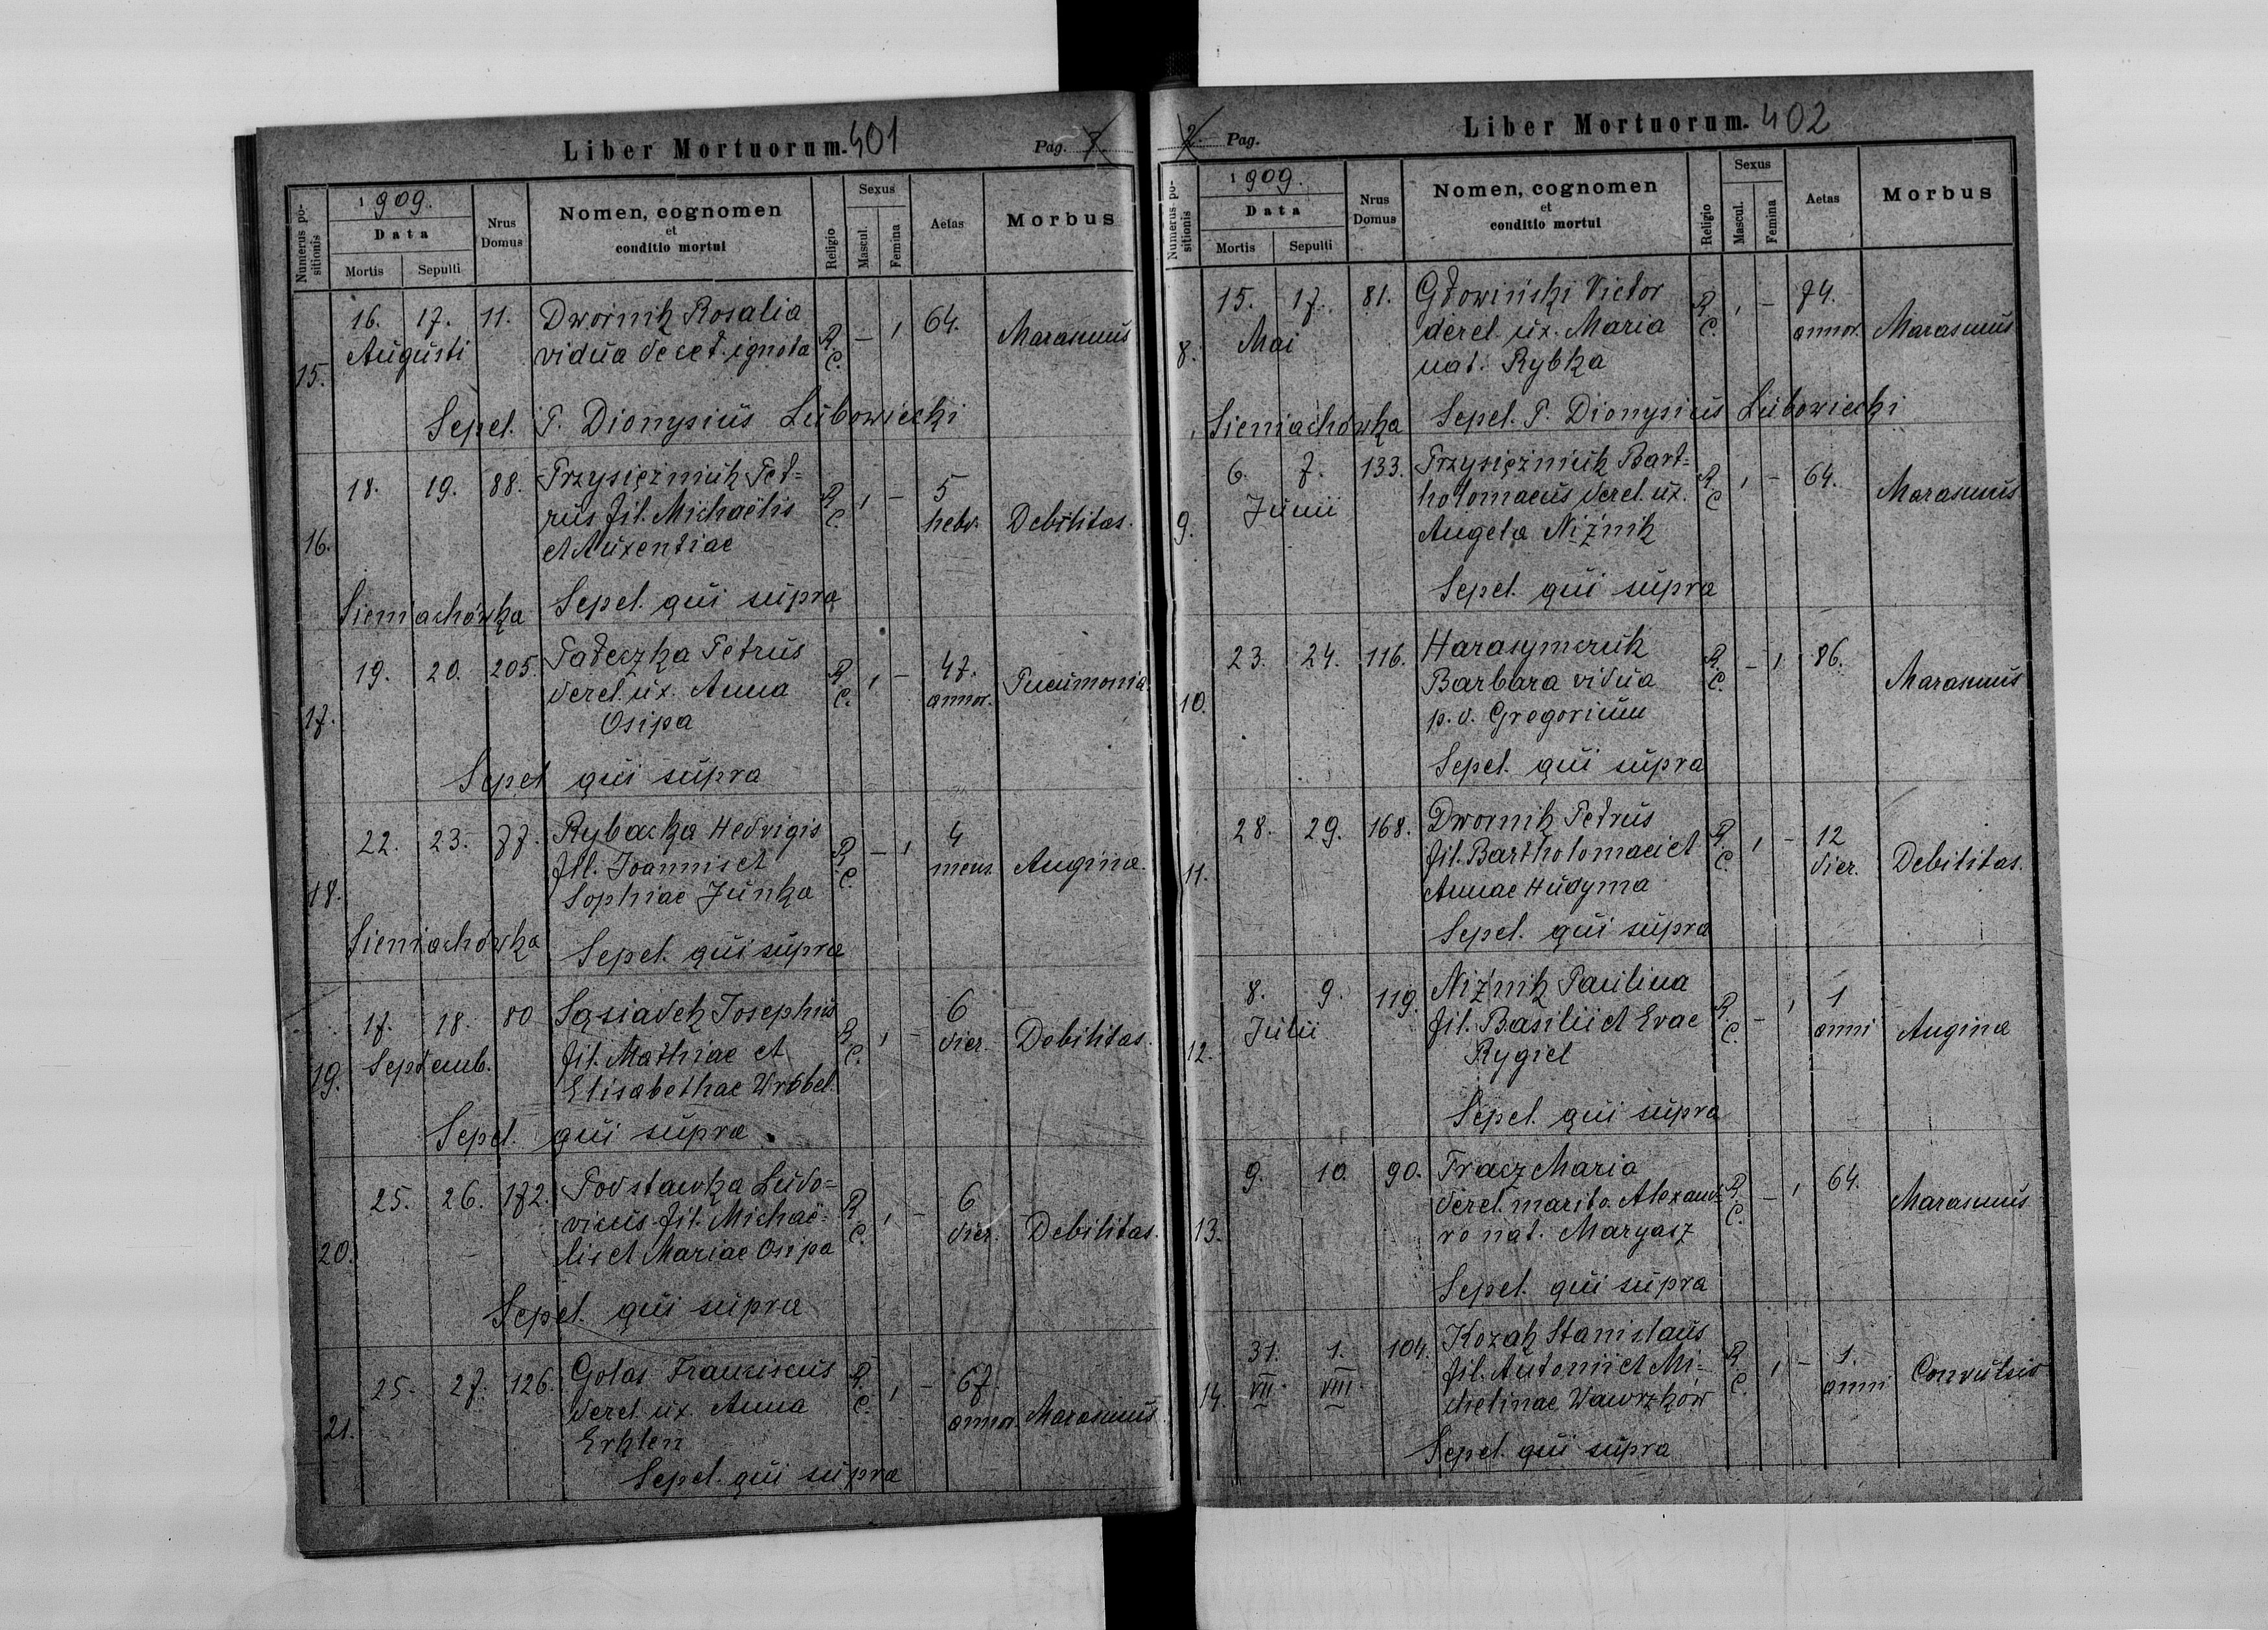 Liber Mortuorum. 401
Pag. 7.
Numerus positionis
1909.
Data
Mortis
Sepulti
Nrus Domus
Nomen, cognomen
et
conditio mortui
Religio
Sexus
Mascul.
Femina
Aetas
Morbus
15. 16. 17. 11. Dwornik Rosalia R. C. – 1 64. Marasmus
Augusti vidua de cet. ignota
Sepel. P. Dionysius Lubowiecki
16. 18. 19. 88. Przysiężniuk Pet=
rus fil. Michaëlis R. C. 1 – 5 hebd. Debilitas.
et Auxentiae
Sieniachówka Sepel. qui supra
17. 19. 20. 205. Pałeczka Petrus
derel. ux. Anna R. C. 1 – 47. annor. Pneumonia.
Osipa
Sepel qui supra
18. 22. 23. 77. Rybacka Hedvigis
fil. Joannis et R. C. – 1 4 mens. Angina.
Sophiae Junka
Sieniachówka Sepel. qui supra
19. 17. 18. 80 Sąsiadek Josephus
Septemb. fil. Mathiae et R. C. 1 – 6 dier. Debilitas.
Elisabethae Wróbel.
Sepel. qui supra.
20. 25. 26. 172. Podstawka Ludo=
vicus fil. Michaë= R. C. 1 – 6 dier. Debilitas.
lis et Mariae Osipa
Sepel. qui supra
21. 25. 27. 126. Golas Franciscus
derel. ux. Anna R. C. 1 – 67. annor. Marasmus.
Erhlen
Sepel. qui supra
2. Pag.
Liber Mortuorum. 402
Numerus positionis
1909.
Data
Mortis
Sepulti
Nrus Domus
Nomen, cognomen
et
conditio mortui
Religio
Sexus
Mascul.
Femina
Aetas
Morbus
8. 15. 17. 81. Głowiński Victor
Mai derel. ux. Maria R. C. 1 – 74. annor. Marasmus
nat. Rybka
Sieniachówka Sepel. P. Dionysius Lubowiecki
9. 6. 7. 133. Przysiężniuk Bart=
Junii holomaeus derel. ux. R. C 1 – 64. Marasmus
Angela Niżnik
Sepel. qui supra
10. 23. 24. 116. Harasymcruk
Barbara vidua R. C. – 1 86. Marasmus
p. d. Gregorium
Sepel. qui supra
11. 28. 29. 168. Dwornik Petrus
fil. Bartholomaei et R. C. 1 – 12 dier. Debilitas.
Annae Hudyma
Sepel. qui supra
12. 8. 9. 119. Niżnik Paulina
Julii fil. Basilii et Evae R. C. – 1 1 anni Angina
Rygiel
Sepel. qui supra
13. 9. 10. 90. Tracz Maria
derel. marito Alexand= R. C. – 1 64. Marasmus
ro nat. Maryasz
Sepel. qui supra
14. 31. 1. 104. Kozak Stanislaus
VII VIII fil. Antonii et Mi= R. C. 1 – 1. anni Convulsio
chelinae Wawrzków
Sepel. qui supra